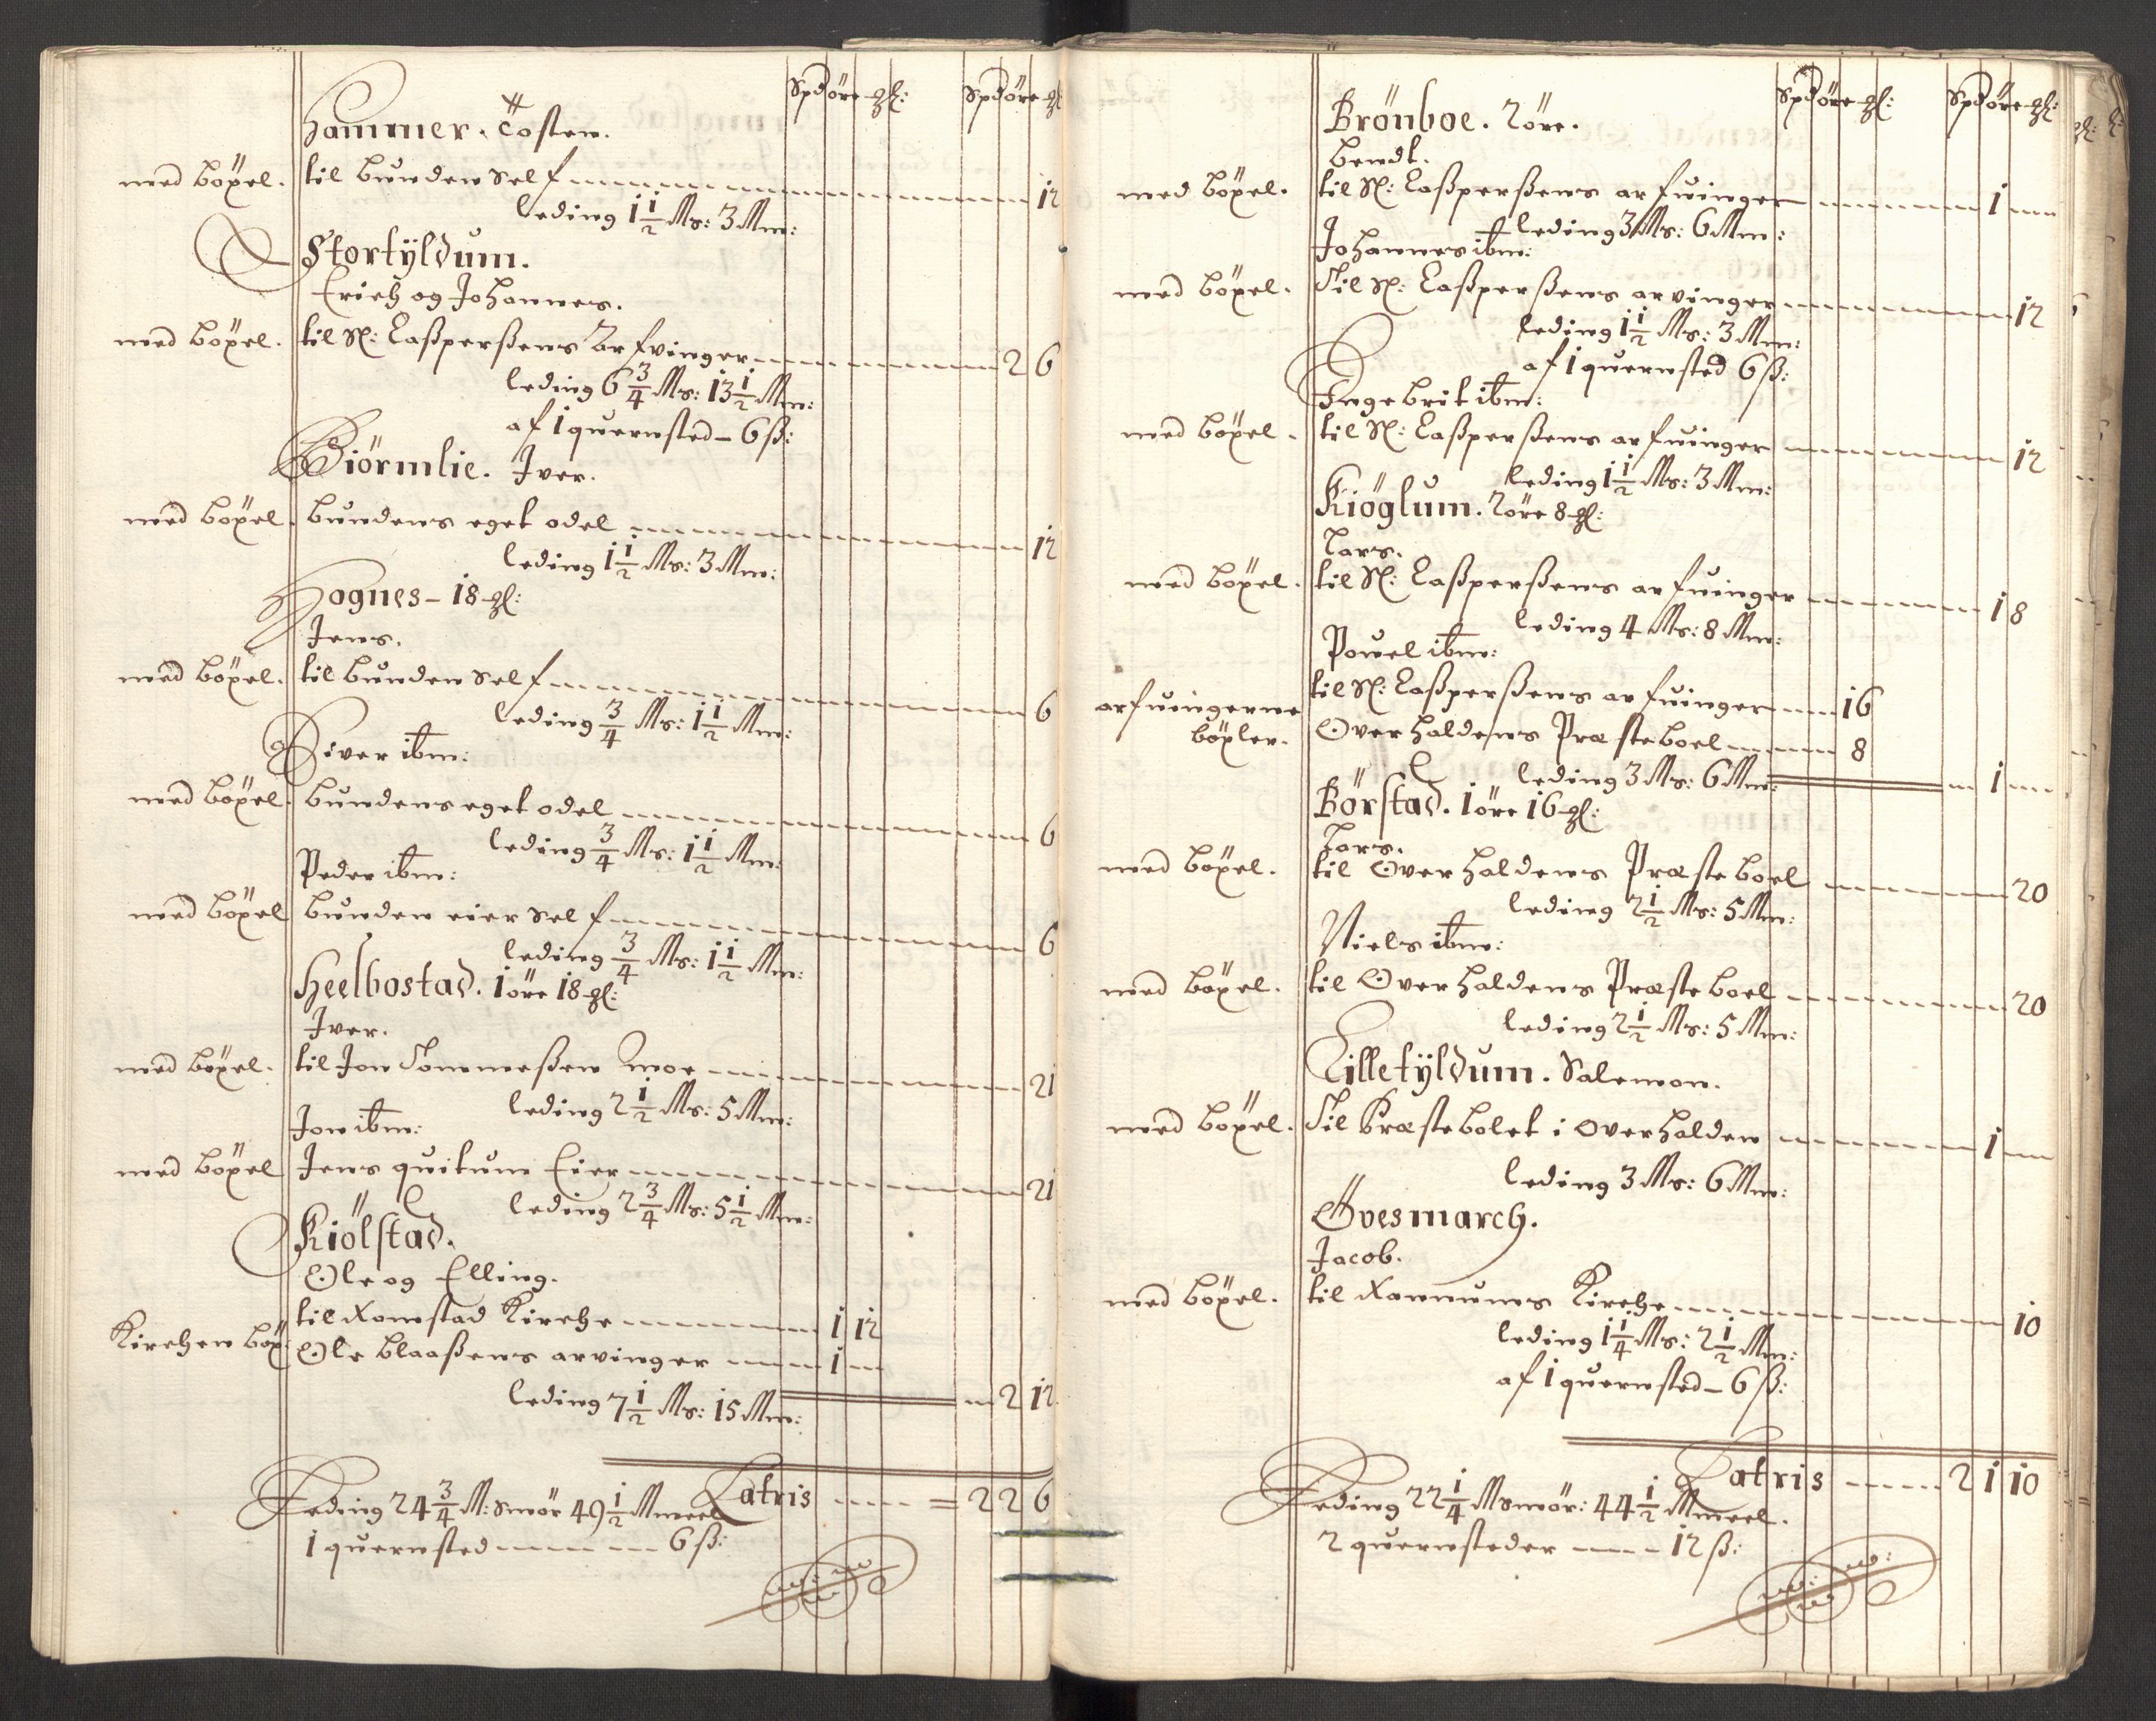 Spd öre gl: Spd öre gl
Hammer. Tosten.
med böxel. til bunden self 12
leding 1 1/2 Mr: 3 Mm:
Stortÿldum.
Erich og Johannes.
med böxel. til Sl: Casperßens Arfvinger 2 6
leding 6 3/4 Mr: 13 1/2 Mm:
af 1 quernsted - 6 ß:
Biörmlie. Iver.
med böxel. bundens eget odel 12
leding 1 1/2 Mr: 3 Mm:
Hognes - 18 gl:
Jens.
med böxel. til bunden self 6
leding 3/4 Mr: 1 1/2 Mm:
Siver ibm:
med böxel. bundens eget odel 6
leding 3/4 Mr: 1 1/2 Mm:
Peder ibm:
med böxel bunden eier self 6
leding 3/4 Mr: 1 1/2 Mm:
Heelbostad. 1 öre 18 gl:
Iver.
med böxel. til Jon Tommeßen Moe 21
leding 2 1/2 Mr: 5 Mm:
Jon ibm:
med böxel Jens quitum Eier 21
leding 2 3/4 Mr: 5 1/2 Mm:
Kiölstad.
Ole og Elling.
til Ranstad Kirche 1 12
Kirchen böx: Ole blaaßens arvinger 1
2 12
leding 7 1/2 Mr: 15 Mm:
Latris = 2 2 6
Leding 24 3/4 M: Smör 49 1/2 M meel
1 quernsted 6 ß:
Spd öre gl: Spd öre gl:
Brönboe. 2 öre.
bendt.
med böxel. til Sl: Casperßens arfuinger 1
leding 3 Mr: 6 Mm:
Johannes ibm:
med böxel. Til Sl: Casperßens arvinger 12
leding 1 1/2 Mr: 3 Mm:
af 1 quernsted 6 ß:
Ingebrit ibm:
med böxel. til Sl: Casperßens arfuinger 12
leding 1 1/2 Mr: 3 Mm:
Kiöglum. 2 öre 8 gl:
Lars.
med böxel. til Sl: Casperßens arfuinger 1 8
leding 4 Mr: 8 Mm:
Powel ibm:
til Sl: Casperßens arfuinger 16
arfuingerne
böxler. Overhaldens Præsteboel 8
leding 3 Mr: 6 Mm: 1
Börstad. 1 öre 16 gl:
Lars.
med böxel. til Overhaldens Præsteboel 20
leding 2 1/2 Mr: 5 Mm:
Niels ibm:
med böxel. til Overhaldens Præsteboel 20
leding 2 1/2 Mr: 5 Mm:
Lilletÿldum. Salemon.
med böxel. Til Præstebolet i Overhalden 1
leding 3 Mr: 6 Mm:
Övesmarch.
Jacob.
med böxel. til Rannums Kirche 10
leding 1 1/4 Mr: 2 1/2 Mm:
af 1 quernsted - 6 ß:
Latris 2 1 10
Leding 22 1/4 M smör: 44 1/2 M meel.
2 quernsteder 12 ß: